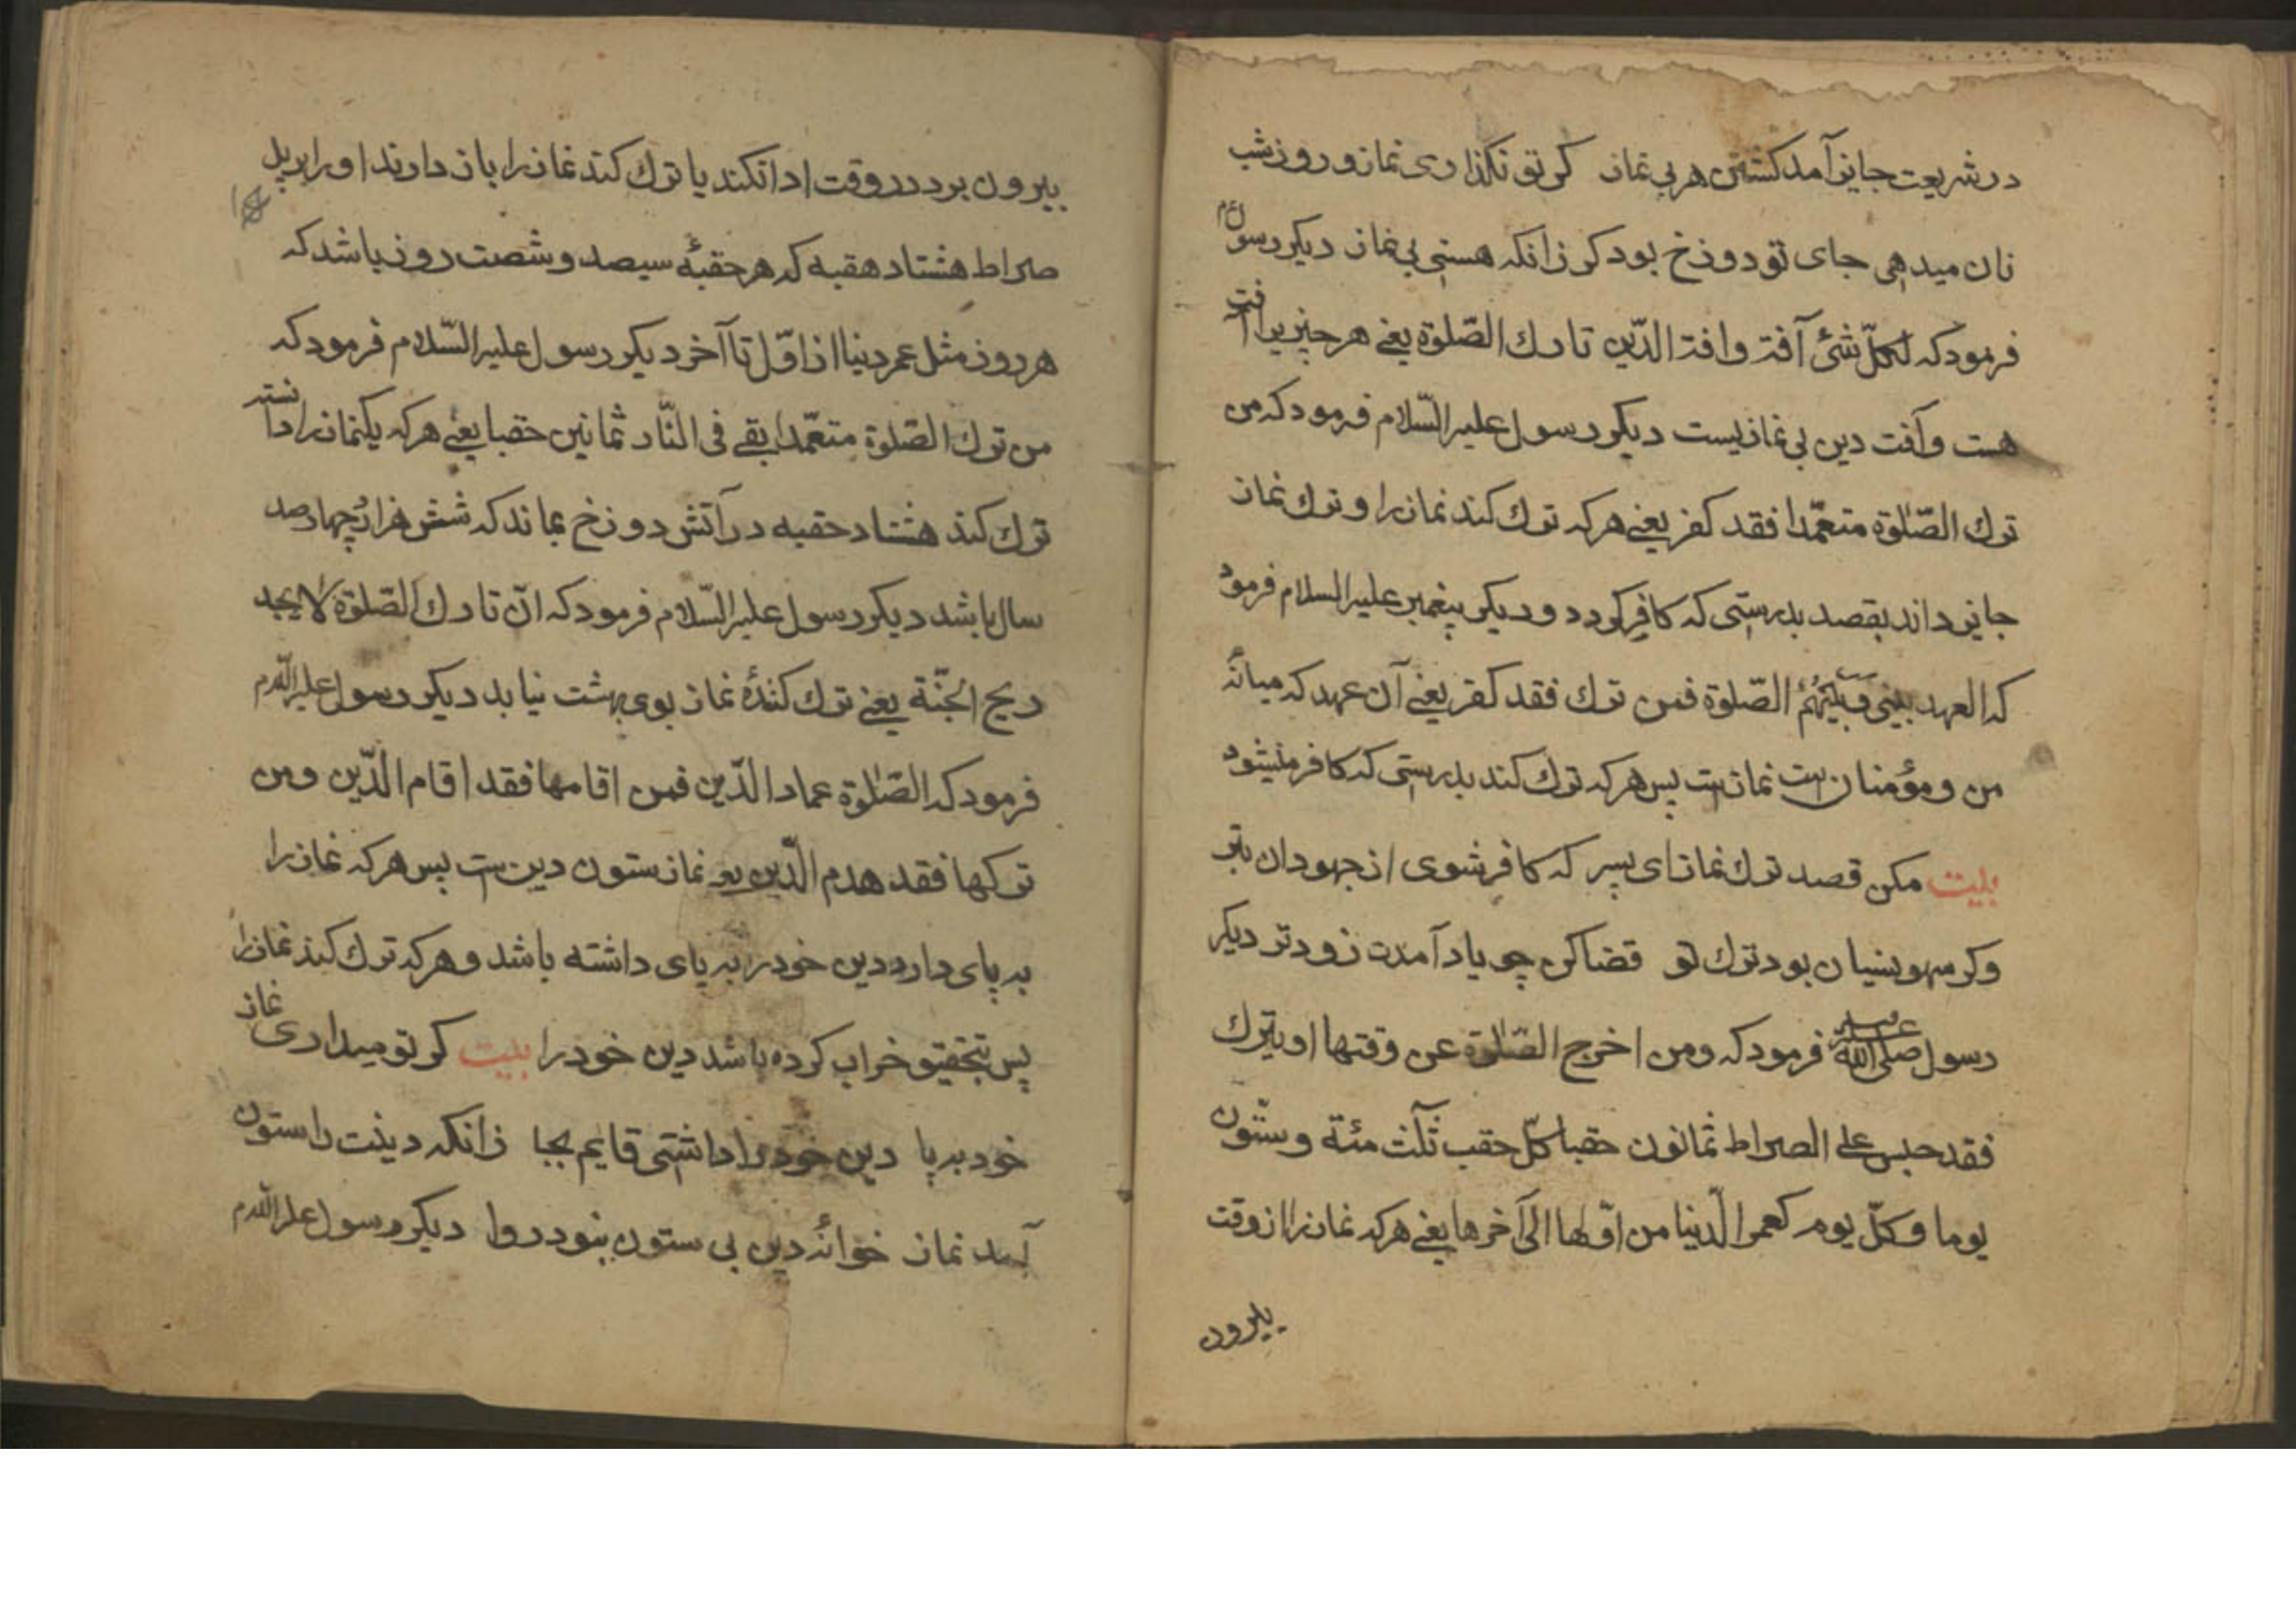 در شریعت جایز آمد کشتن هر بی نماز کر تو نکذاری نماز و روز شب
نان میدهی جای تو دوزخ بود کر زانکه هستی بی نماز دیکر رسول ءم
فرمود که لکلّ شئ آفة وافة الدّین تارك الصّلوة یعنی هر چیزیرا آفت
هست وآفت دین بی نمازیست دیکر رسول علیه السّلام فرمود که من
ترك الصّلوة متعمّدا فقد کفر یعنی هر که ترك کند نماز را و ترك نماز
جایز داند بقصد بدرستی که کافر کردد و دیکر پیغمبر علیه السلام فرمود
که العهد بینی وبینهم الصّلوة فمن ترك فقد کفر یعنی آن عهد که میانهٔ
من و مؤمنان ست نمازست پس هر که ترك کند بدرستی که کافر میشود
بیت مکن قصد ترك نماز ای پسر که کافر شوی از جهودان بتر
وکر سهو ونسیان بود ترك تو قضا کن چو یاد آمدت زودتر دیکر
رسول صلی الله علیه فرمود که ومن اخرج الصّلوة عن وقتها او یترك
فقد حبس علی الصراط ثمانون حقبا کلّ حقب ثلث مئة وستّون
یوما وکلّ یوم کعمر الدّنیا من اوّلها الی آخرها یعنی هر که نماز را از وقت
بیرون
بیرون برد در وقت ادا نکند یا ترك کند نماز را باز دارند او را بر پل
صراط هشتاد هقبه که هر حقبهٔ سیصد و شصت روز باشد که
هر روز مثل عمر دنیا از اوّل تا آخر دیکر رسول علیه السّلام فرمود که
من ترك الصّلوة متعمّدا بقی فی النّار ثمانین حقبا یعنی هر که یکنماز را دانسته
ترك کند هشتاد حقبه در آتش دوزخ بماند که شش هزار چهارصد
سال باشد دیکر رسول علیه السّلام فرمود که انّ تارك الصّلوة لا یجد
ریح الجنّة یعنی ترك کنندهٔ نماز بوی بهشت نیابد دیکر رسول علیه السّلام
فرمود که الصّلوة عماد الدّین فمن اقامها فقد اقام الدّین ومن
ترکها فقد هدم الدّین یعنی نماز ستون دین ست پس هر که نماز را
به پای دارد دین خود را به پای داشته باشد و هر که ترك کند نماز را
پس بتحقیق خراب کرده باشد دین خود را بیت کر تو میداری نماز
خود به پا دین خود را داشتی قایم بجا زانکه دینت را ستون
آمد نماز خوانهٔ دین بی ستون نبود روا دیکر رسول علیه السّلام